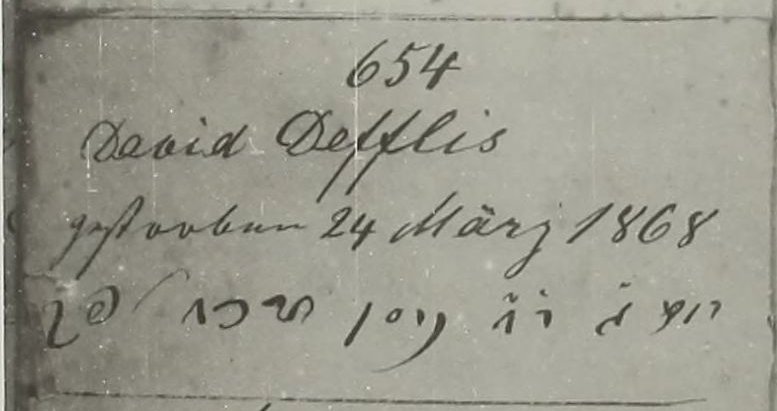 654
David Defflis
gestorben 24 März 1868
יום ג׳ ר״ח ניסן תרכח לפ״ק